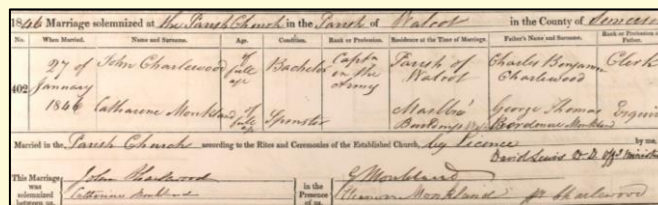 1846 Marriage solemnized at the Parish Church in the Parish of Walcot in the County of Somerset
No. When Married. Name and Surname. Age. Condition. Rank or Profession. Residence at the Time of Marriage. Father's Name and Surname. Rank or Profession of Father.
402 27 of January 1846 John Charlewood of full age Bachelor Captn in the Army Parish of Walcot Charles Benjamin Charlewood Clerk
Catharine Monkland of full age Spinster Marlbro' Buildings George Thomas Monkland Esquire
Married in the Parish Church according to the Rites and Ceremonies of the Established Church, by Licence by me,
David Lewis D.D. Offg Minister
This Marriage was solemnized between us, John Charlewood Catharine Monkland in the Presence of us, G Monkland Monkland Charlewood